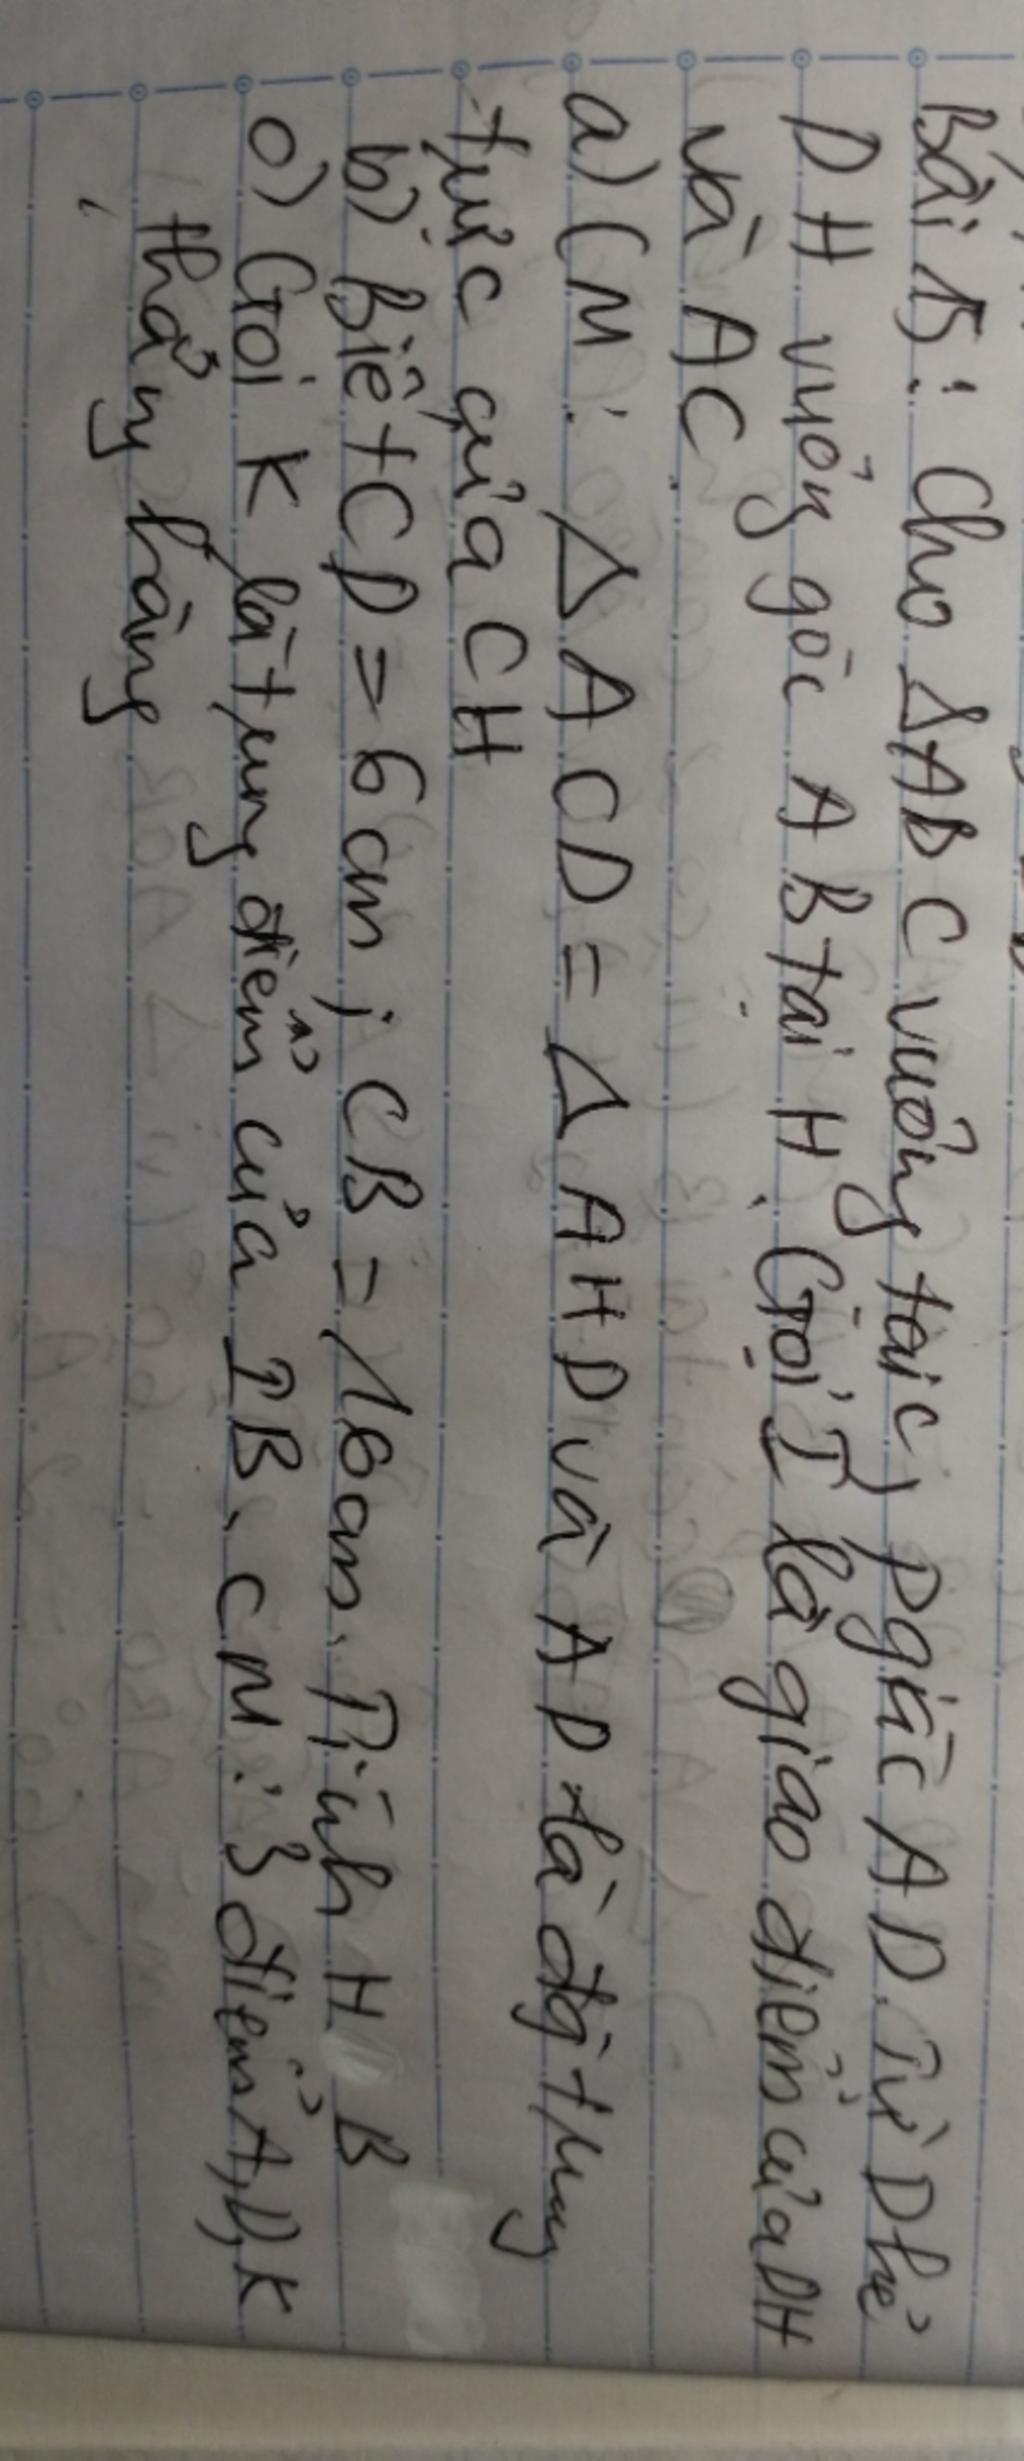 Bài 15: Cho ΔABC vuông tại C, pgiác AD. Từ D kẻ
DH vuông góc AB tại H. Gọi I là giao điểm của DH
và AC.
a) CM: Δ ACD = Δ AHD và AD là đg trung
trực của CH
b) Biết CD = 6cm; CB = 16cm. Tính HB
c) Gọi K là trung điểm của IB. CM: 3 điểm A, D, K
thẳng hàng